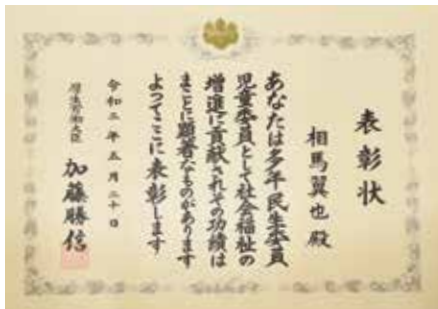 表彰状
相馬翼也殿
あなたは多年民生委員
児童委員として社会福祉の
増進に貢献されその功績は
まことに顕著なものがあります
よってここに表彰します
令和二年五月二十日
厚生労働大臣 加藤勝信